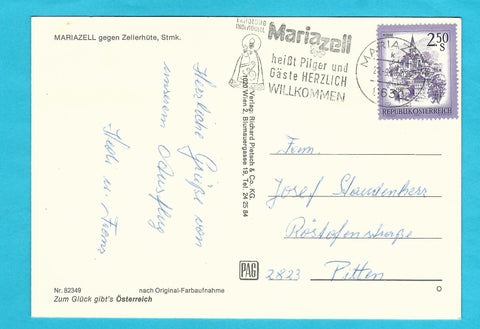 MARIAZELL gegen Zellerhüte, Stmk.
Herzliche Grüße von
unserem Ausflug
Hedi u. Franz.
Nr. 82349
nach Original-Farbaufnahme
Zum Glück gibt's Österreich
Verlag: Richard Pietsch & Co. KG.
1020 Wien 2, Blumauergasse 19, Tel. 24 25 84
PAG
Mariazell
heißt Pilger und
Gäste HERZLICH
WILLKOMMEN
MARIAZ
8630
2.50
S
REPUBLIK ÖSTERREICH
Fam.
Josef Staudenherz
Röstofenstraße
2823 Pitten